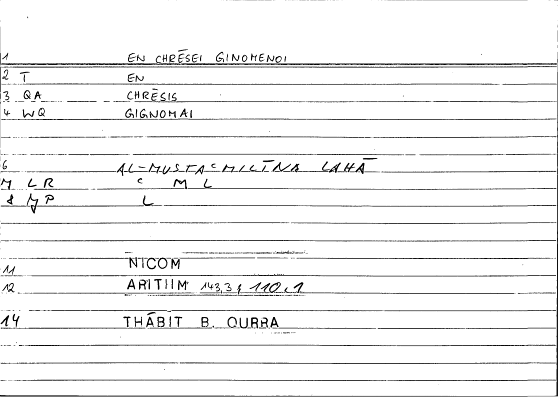 1 EN CHRĒSEI GINOMENOI
2 T EN
3 QA CHRĒSIS
4 WQ GIGNOMAI
6 AL-MUSTAʿMILĪNA LAHĀ
M LR ʿ M L
8 MP L
11 NICOM
12 ARITIIM 143,3; 110,1
14 THĀBIT B. QURRA